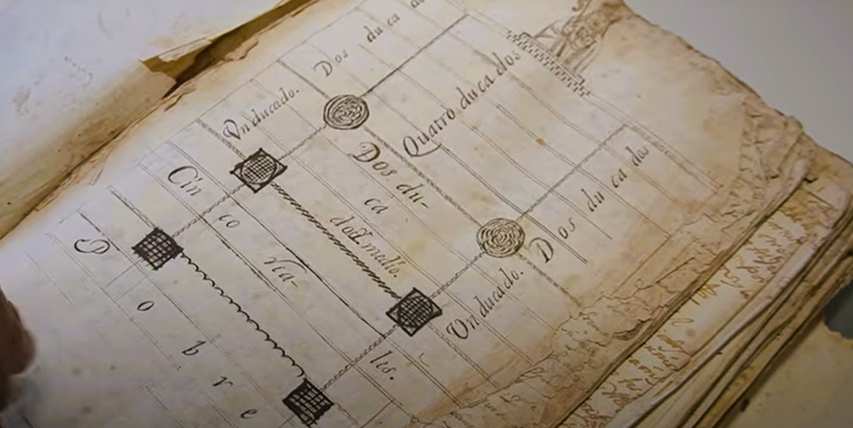 Vn ducado.
Dos du ca do
Quatro du ca dos
Dos du-
ca
dos Y medio.
Cin
co
rea-
les.
Vn ducado.
Dos du ca dos
P
o
b
r
e